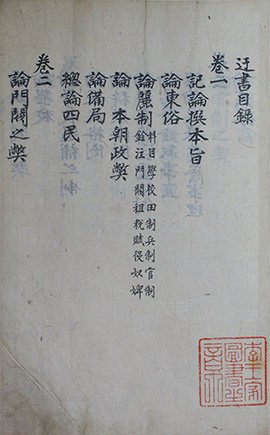 迂書目錄
卷一
記論撰本旨
論東俗
論麗制 科目學校田制兵制官制
銓注門閥租稅賦役奴婢
論 本朝政弊
論備局
總論四民
卷二
論門閥之弊